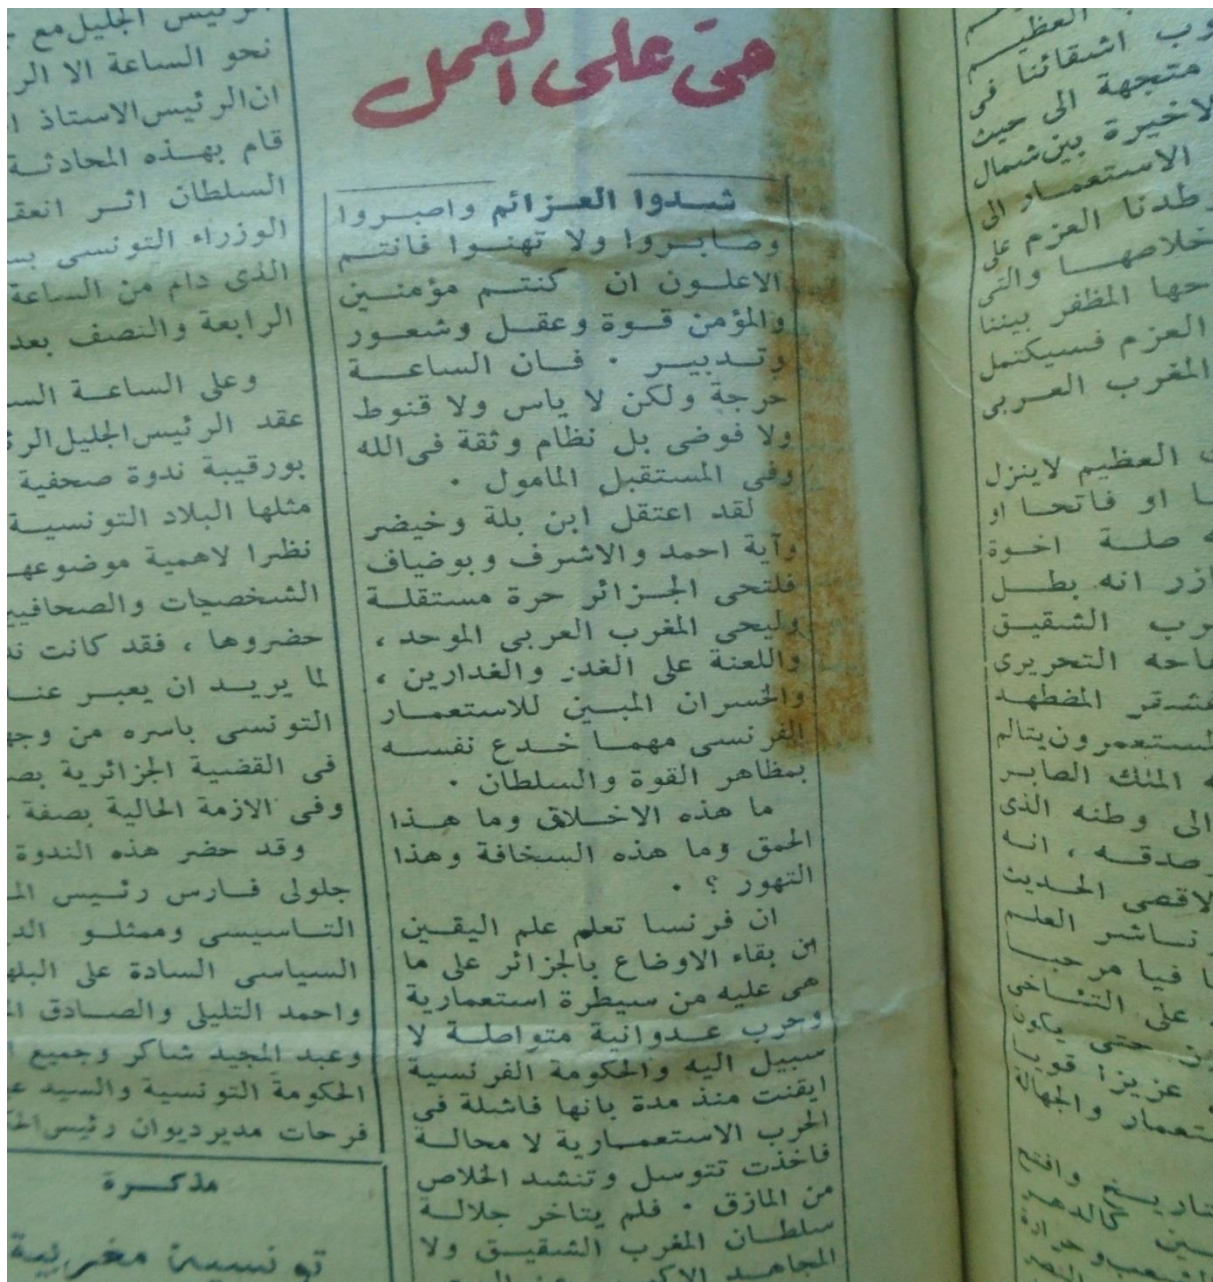 العظيم
اشقائنا فى
متجهة الى حيث
الاخيرة بين شمال
الاستعمار الى
وطدنا العزم على
خلاصهـا والتى
المظفر بيننا
العزم فسيكتمل
المغرب العـربى
العظيم لاينزل
او فاتحـا او
صلـة اخـوة
انه بطـل
الشقيـق
التحريرى
المضطهد
يتالم
الملك الصابـر
الى وطنه الذى
صدقـه ، انـه
الاقصى الحـديث
ناشر العلـم
فيا مرحبـا
على
حتـى يكون
عزيزا قويـا
والجهالة
حىّ على العمل
شـدوا العـزائم واصبـروا
وصابـروا ولا تهنـوا فانتـم
الاعلـون ان كنتـم مؤمنـين
والمؤمن قـوة وعقـل وشعـور
وتـدبيـر . فـان الساعـة
حرجة ولكن لا ياس ولا قنوط
ولا فوضى بل نظام وثقة فى الله
وفى المستقبل المامول .
لقد اعتقل ابن بلة وخيضر
وآية احمد والاشرف وبوضياف
فلتحى الجـزائر حرة مستقلـة
وليحى المغرب العربى الموحد ،
واللعنة على الغدر والغدارين ،
والخسران المبـين للاستعمـار
الفرنسى مهمـا خـدع نفسـه
بمظاهر القوة والسلطان .
ما هذه الاخـلاق وما هـذا
الحمق وما هذه السخافة وهذا
التهور ؟ .
ان فرنسا تعلم علم اليقـين
ان بقاء الاوضاع بالجزائر على ما
هى عليه من سيطرة استعمارية
وحرب عـدوانية متواصلـة لا
سبيل اليه والحكومة الفرنسية
ايقنت منذ مدة بانها فاشلة فى
الحرب الاستعمـارية لا محالـة
فاخذت تتوسل وتنشد الخلاص
من المازق . فلم يتاخر جلالـة
سلطـان المغرب الشقيـق ولا
المجاهـد الاكبـر
الرئيس الجليل مع
نحو الساعة الا
ان الرئيس الاستاذ
قام بهـذه المحادثـة
السلطان اثـر
الوزراء التونسى
الذى دام من الساعة
الرابعة والنصف بعد
وعلى الساعـة
عقد الرئيس الجليل
بورقيبة ندوة صحفية
مثلها البلاد التونسيـة
نظرا لاهمية
الشخصيات
حضروها ، فقد كانت
لما يريـد ان يعبـر
التونسى باسره من
فى القضية الجزائرية
وفى الازمة الحالية بصفة
وقد حضر هذه الندوة
جلولى فـارس رئـيس
التـاسيسى وممثلـو
السياسى السادة على
واحمد التليلى والصـادق
وعبد المجيد شاكر وجميع
الحكومة التونسية والسيد
فرحات مدير ديوان رئيس
مذكـرة
تونسيـة مغربية